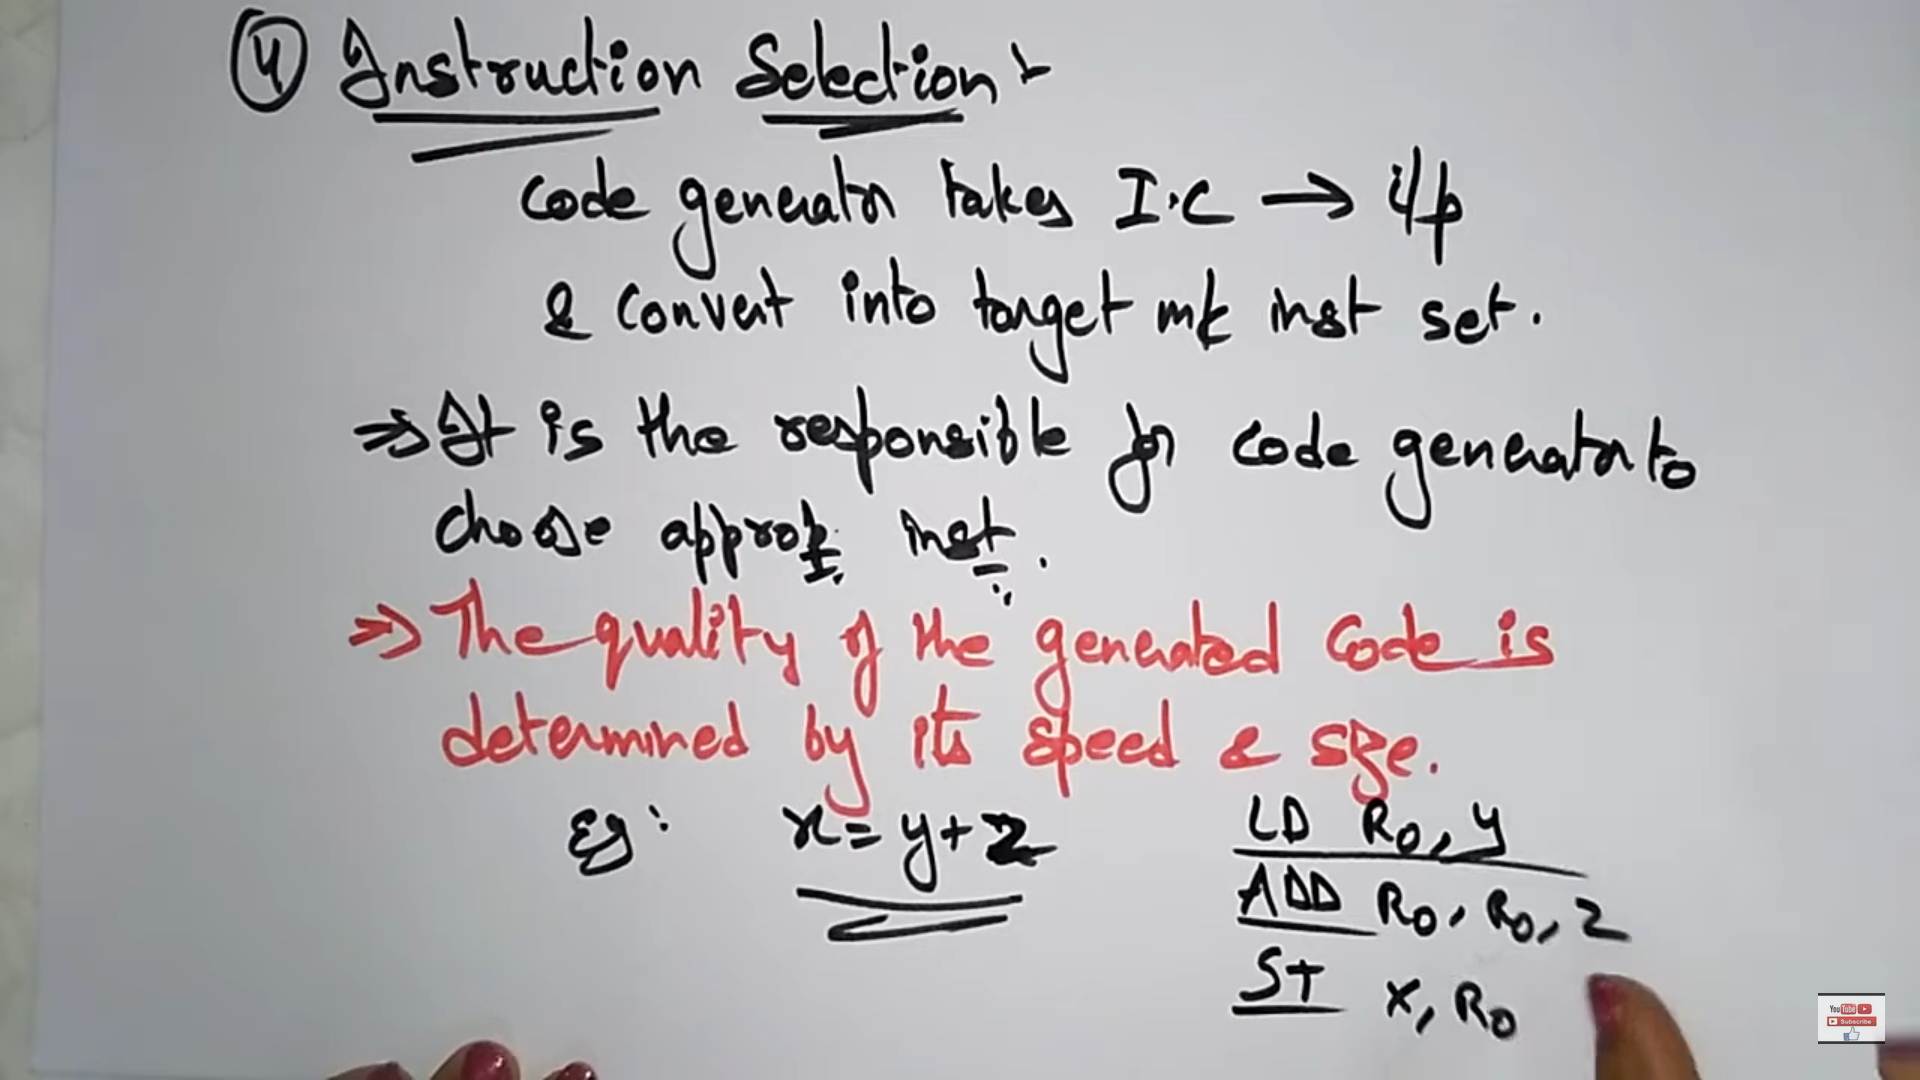 4 Instruction Selection :-
Code generator takes I.C → i/p
& convert into target m/c inst set.
⇒ It is the responsible for code generator to
choose approp. inst.
⇒ The quality of the generated code is
determined by its speed & size.
Eg: x = y + z
LD R0, y
ADD R0, R0, z
ST x, R0
YouTube
Subscribe